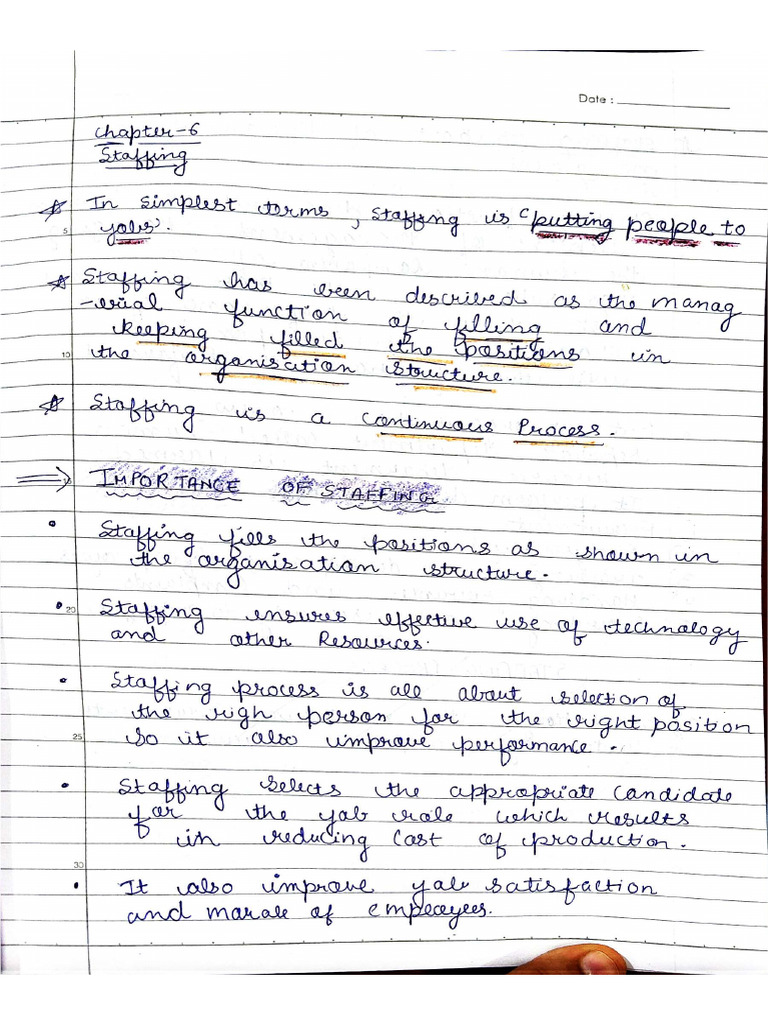 Date :
Chapter-6
Staffing
In simplest terms, staffing is 'putting people to
5
jobs'.
Staffing has been described as the manag
-erial function of filling and
keeping filled the positions in
10
the organisation structure.
Staffing is a continuous Process.
IMPORTANCE OF STAFFING
Staffing fills the positions as shown in
the organisation structure.
20
Staffing ensures effective use of technology
and other Resources.
Staffing process is all about selection of
the righ person for the right position
25
so it also improve performance.
Staffing selects the appropriate candidate
for the job role which results
in reducing cost of production.
30
It also improve job satisfaction
and morale of employees.